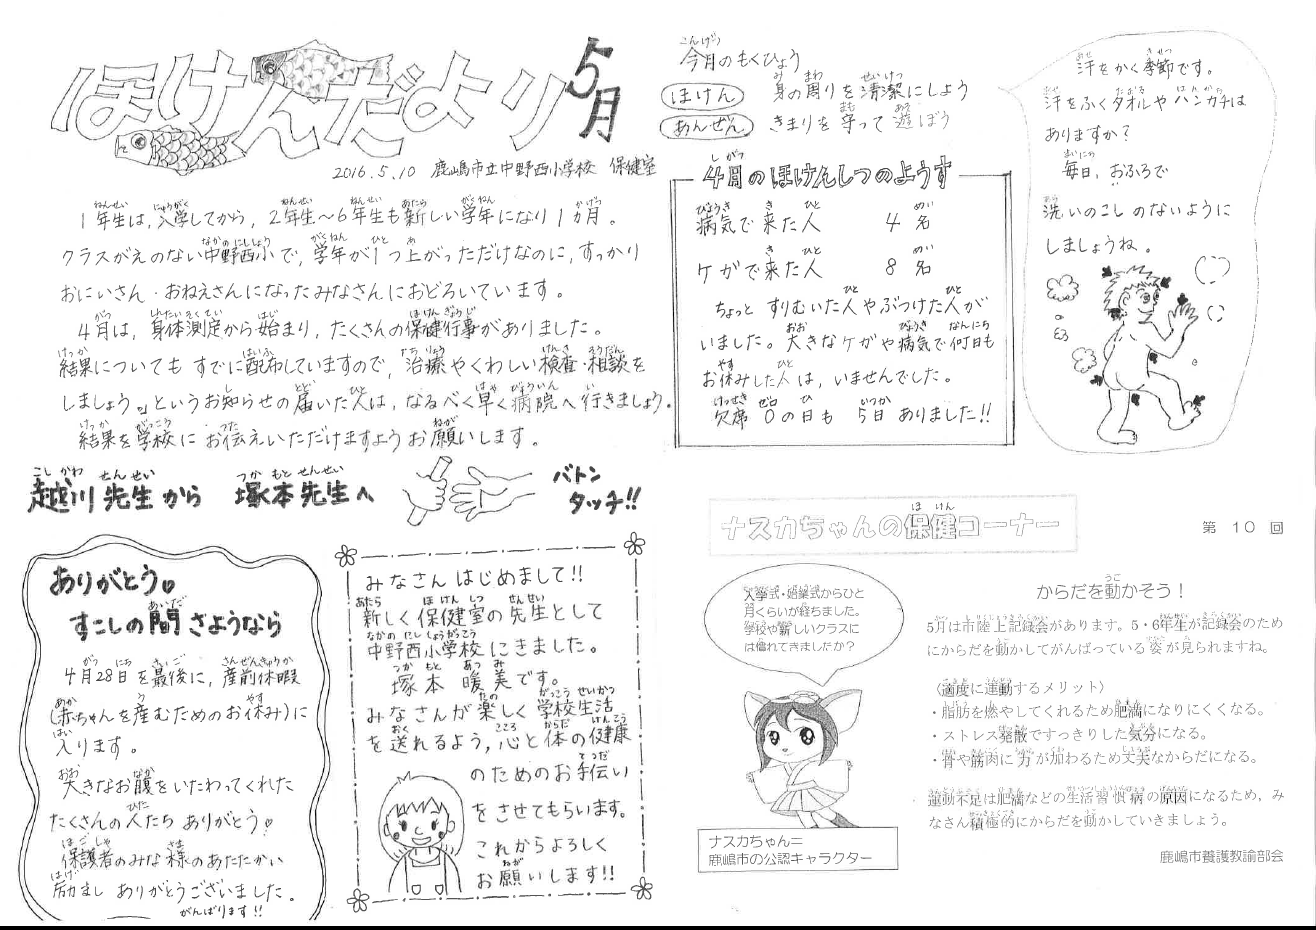 ほけんだより 5月
2016.5.10 鹿嶋市立中野西小学校 保健室
1年生は、入学してから、2年生～6年生も新しい学年になり1ヵ月。
クラスがえのない中野西小で、学年が1つ上がっただけなのに、すっかり
おにいさん・おねえさんになったみなさんにおどろいています。
4月は、身体測定から始まり、たくさんの保健行事がありました。
結果についてもすでに配布していますので、治療やくわしい検査・相談を
しましょう。というお知らせの届いた人は、なるべく早く病院へ行きましょう。
結果を学校にお伝えいただけますようお願いします。
越川先生から 塚本先生へ
バトン
タッチ!!
ありがとう。
すこしの間さようなら
4月28日を最後に、産前休暇
(赤ちゃんを産むためのお休み)に
入ります。
大きなお腹をいたわってくれた
たくさんの人たちありがとう。
保護者のみな様のあたたかい
励まし ありがとうございました。
がんばります!!
みなさんはじめまして!!
新しく保健室の先生として
中野西小学校にきました。
塚本 暖美です。
みなさんが楽しく学校生活
を送れるよう、心と体の健康
のためのお手伝い
をさせてもらいます。
これからよろしく
お願いします!!
今月のもくひょう
ほけん 身の周りを清潔にしよう
あんぜん きまりを守って遊ぼう
4月のほけんしつのようす
病気で来た人 4名
ケガで来た人 8名
ちょっとすりむいた人やぶつけた人が
いました。大きなケガや病気で何日も
お休みした人は、いませんでした。
欠席0の日も5日ありました!!
汗をかく季節です。
汗をふくタオルやハンカチは
ありますか?
毎日、おふろで
洗いのこしのないように
しましょうね。
ナスカちゃんの保健コーナー
第 10 回
入学式・始業式からひと
月くらいが経ちました。
学校や新しいクラスに
は慣れてきましたか?
ナスカちゃん=
鹿嶋市の公認キャラクター
からだを動かそう!
5月は市陸上記録会があります。5・6年生が記録会のため
にからだを動かしてがんばっている姿が見られますね。
〈適度に運動するメリット〉
・脂肪を燃やしてくれるため肥満になりにくくなる。
・ストレス発散ですっきりした気分になる。
・骨や筋肉に力が加わるため丈夫なからだになる。
運動不足は肥満などの生活習慣病の原因になるため、み
なさん積極的にからだを動かしていきましょう。
鹿嶋市養護教諭部会